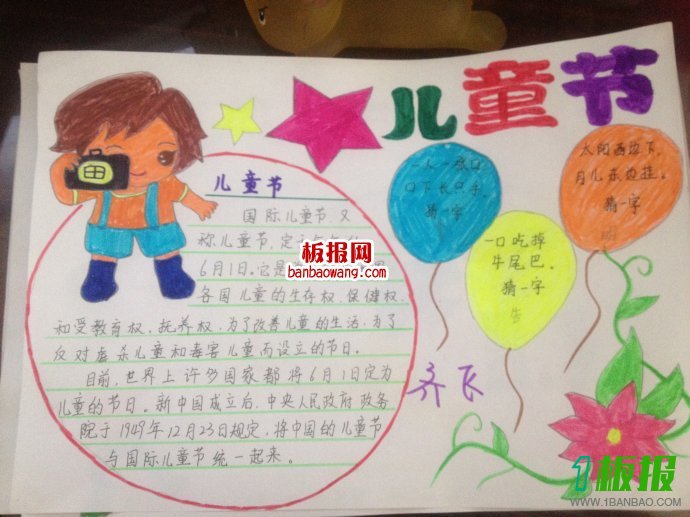 儿童节
儿童节
国际儿童节,又
称儿童节,定
6月1日。它是
各国儿童的生存权、保健权、
和受教育权、抚养权,为了改善儿童的生活,为了
反对虐杀儿童和毒害儿童而设立的节日。
目前,世界上许多国家都将6月1日定为
儿童的节日。新中国成立后,中央人民政府政务
院于1949年12月23日规定,将中国的儿童节
与国际儿童节统一起来。
一人一张口
口下长只手
猜一字
一口吃掉
牛尾巴。
猜一字
告
太阳西边下,
月儿东边挂。
猜一字
明
齐飞
板报网
banbaowang.com
1板报
WWW.1BANBAO.COM